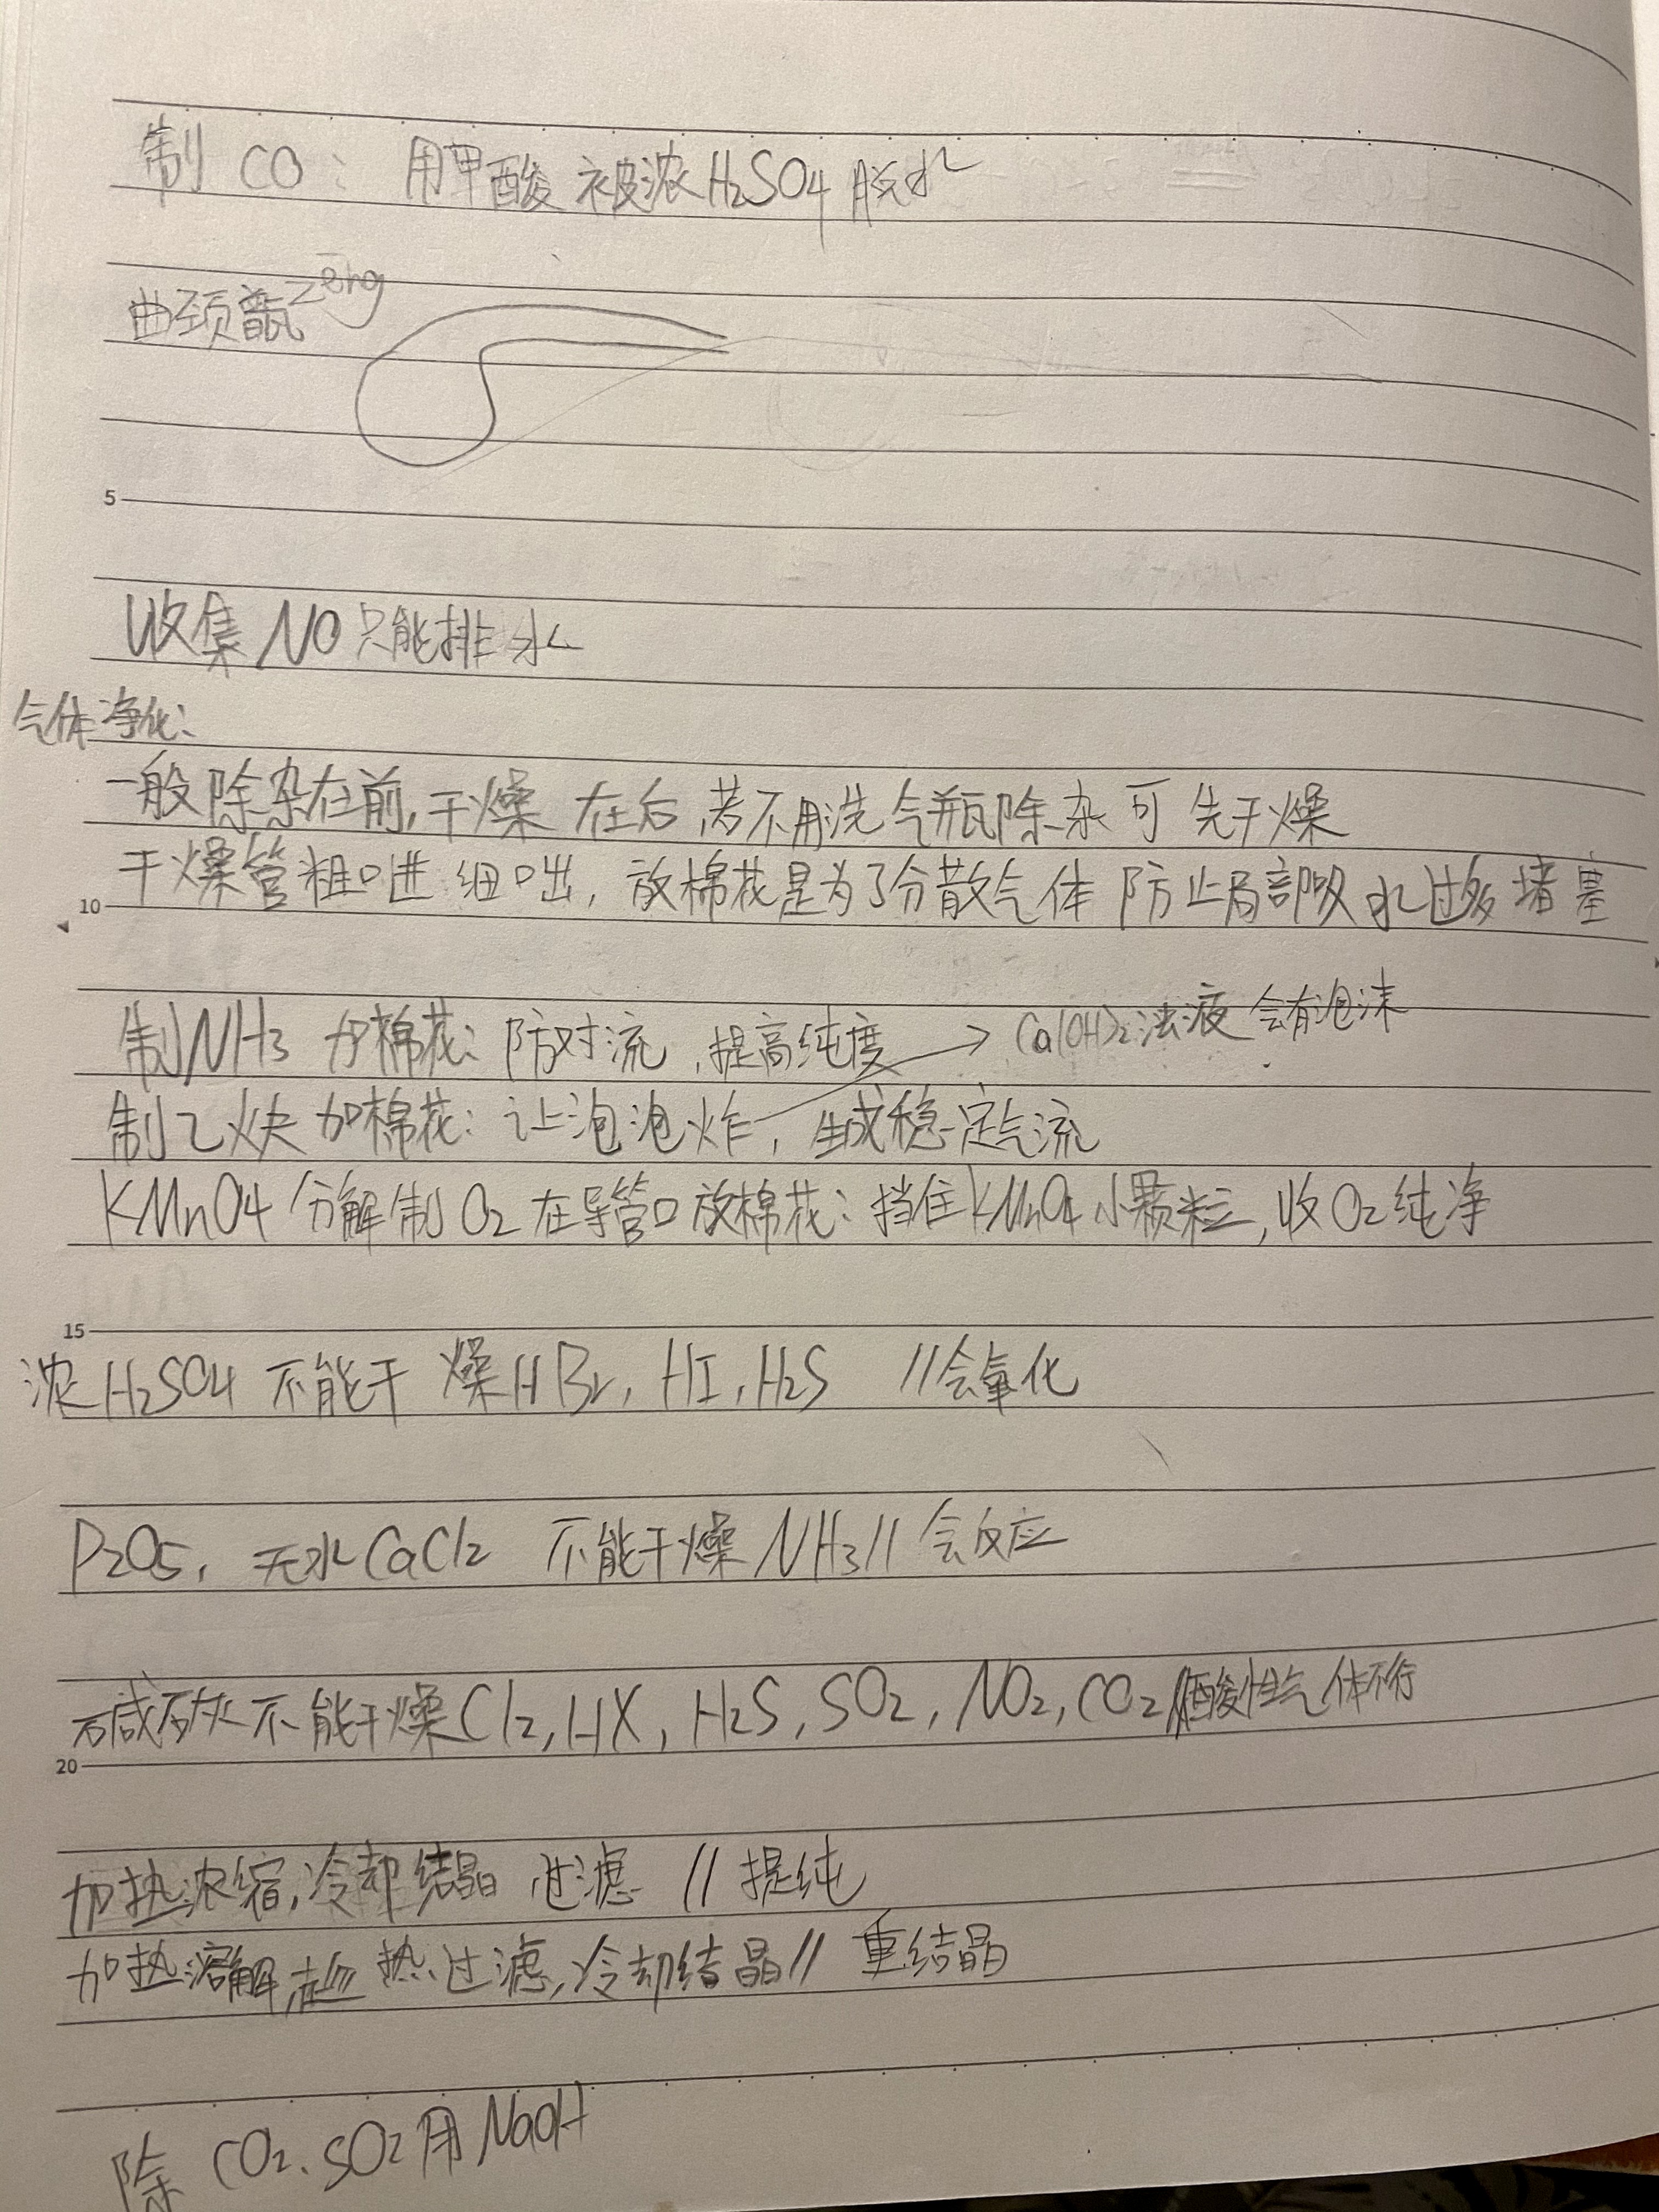 制 CO： 用甲酸被浓H2SO4脱水
曲颈甑zēng
5
收集NO只能排水
气体净化：
一般除杂在前，干燥在后，若不用洗气瓶除杂可先干燥
干燥管粗口进细口出，放棉花是为了分散气体防止局部吸水过多堵塞
10
制NH3加棉花：防对流，提高纯度 → Ca(OH)2浊液会有泡沫
制乙炔加棉花：让泡泡炸，生成稳定气流
KMnO4分解制O2在导管口放棉花：挡住KMnO4小颗粒，收O2纯净
15
浓H2SO4不能干燥HBr，HI，H2S //会氧化
P2O5，无水CaCl2 不能干燥NH3//会反应
碱石灰不能干燥Cl2,HX，H2S，SO2，NO2，CO2//酸性气体不行
20
加热浓缩，冷却结晶 过滤 //提纯
加热溶解，趁热过滤，冷却结晶//重结晶
除CO2、SO2用NaOH